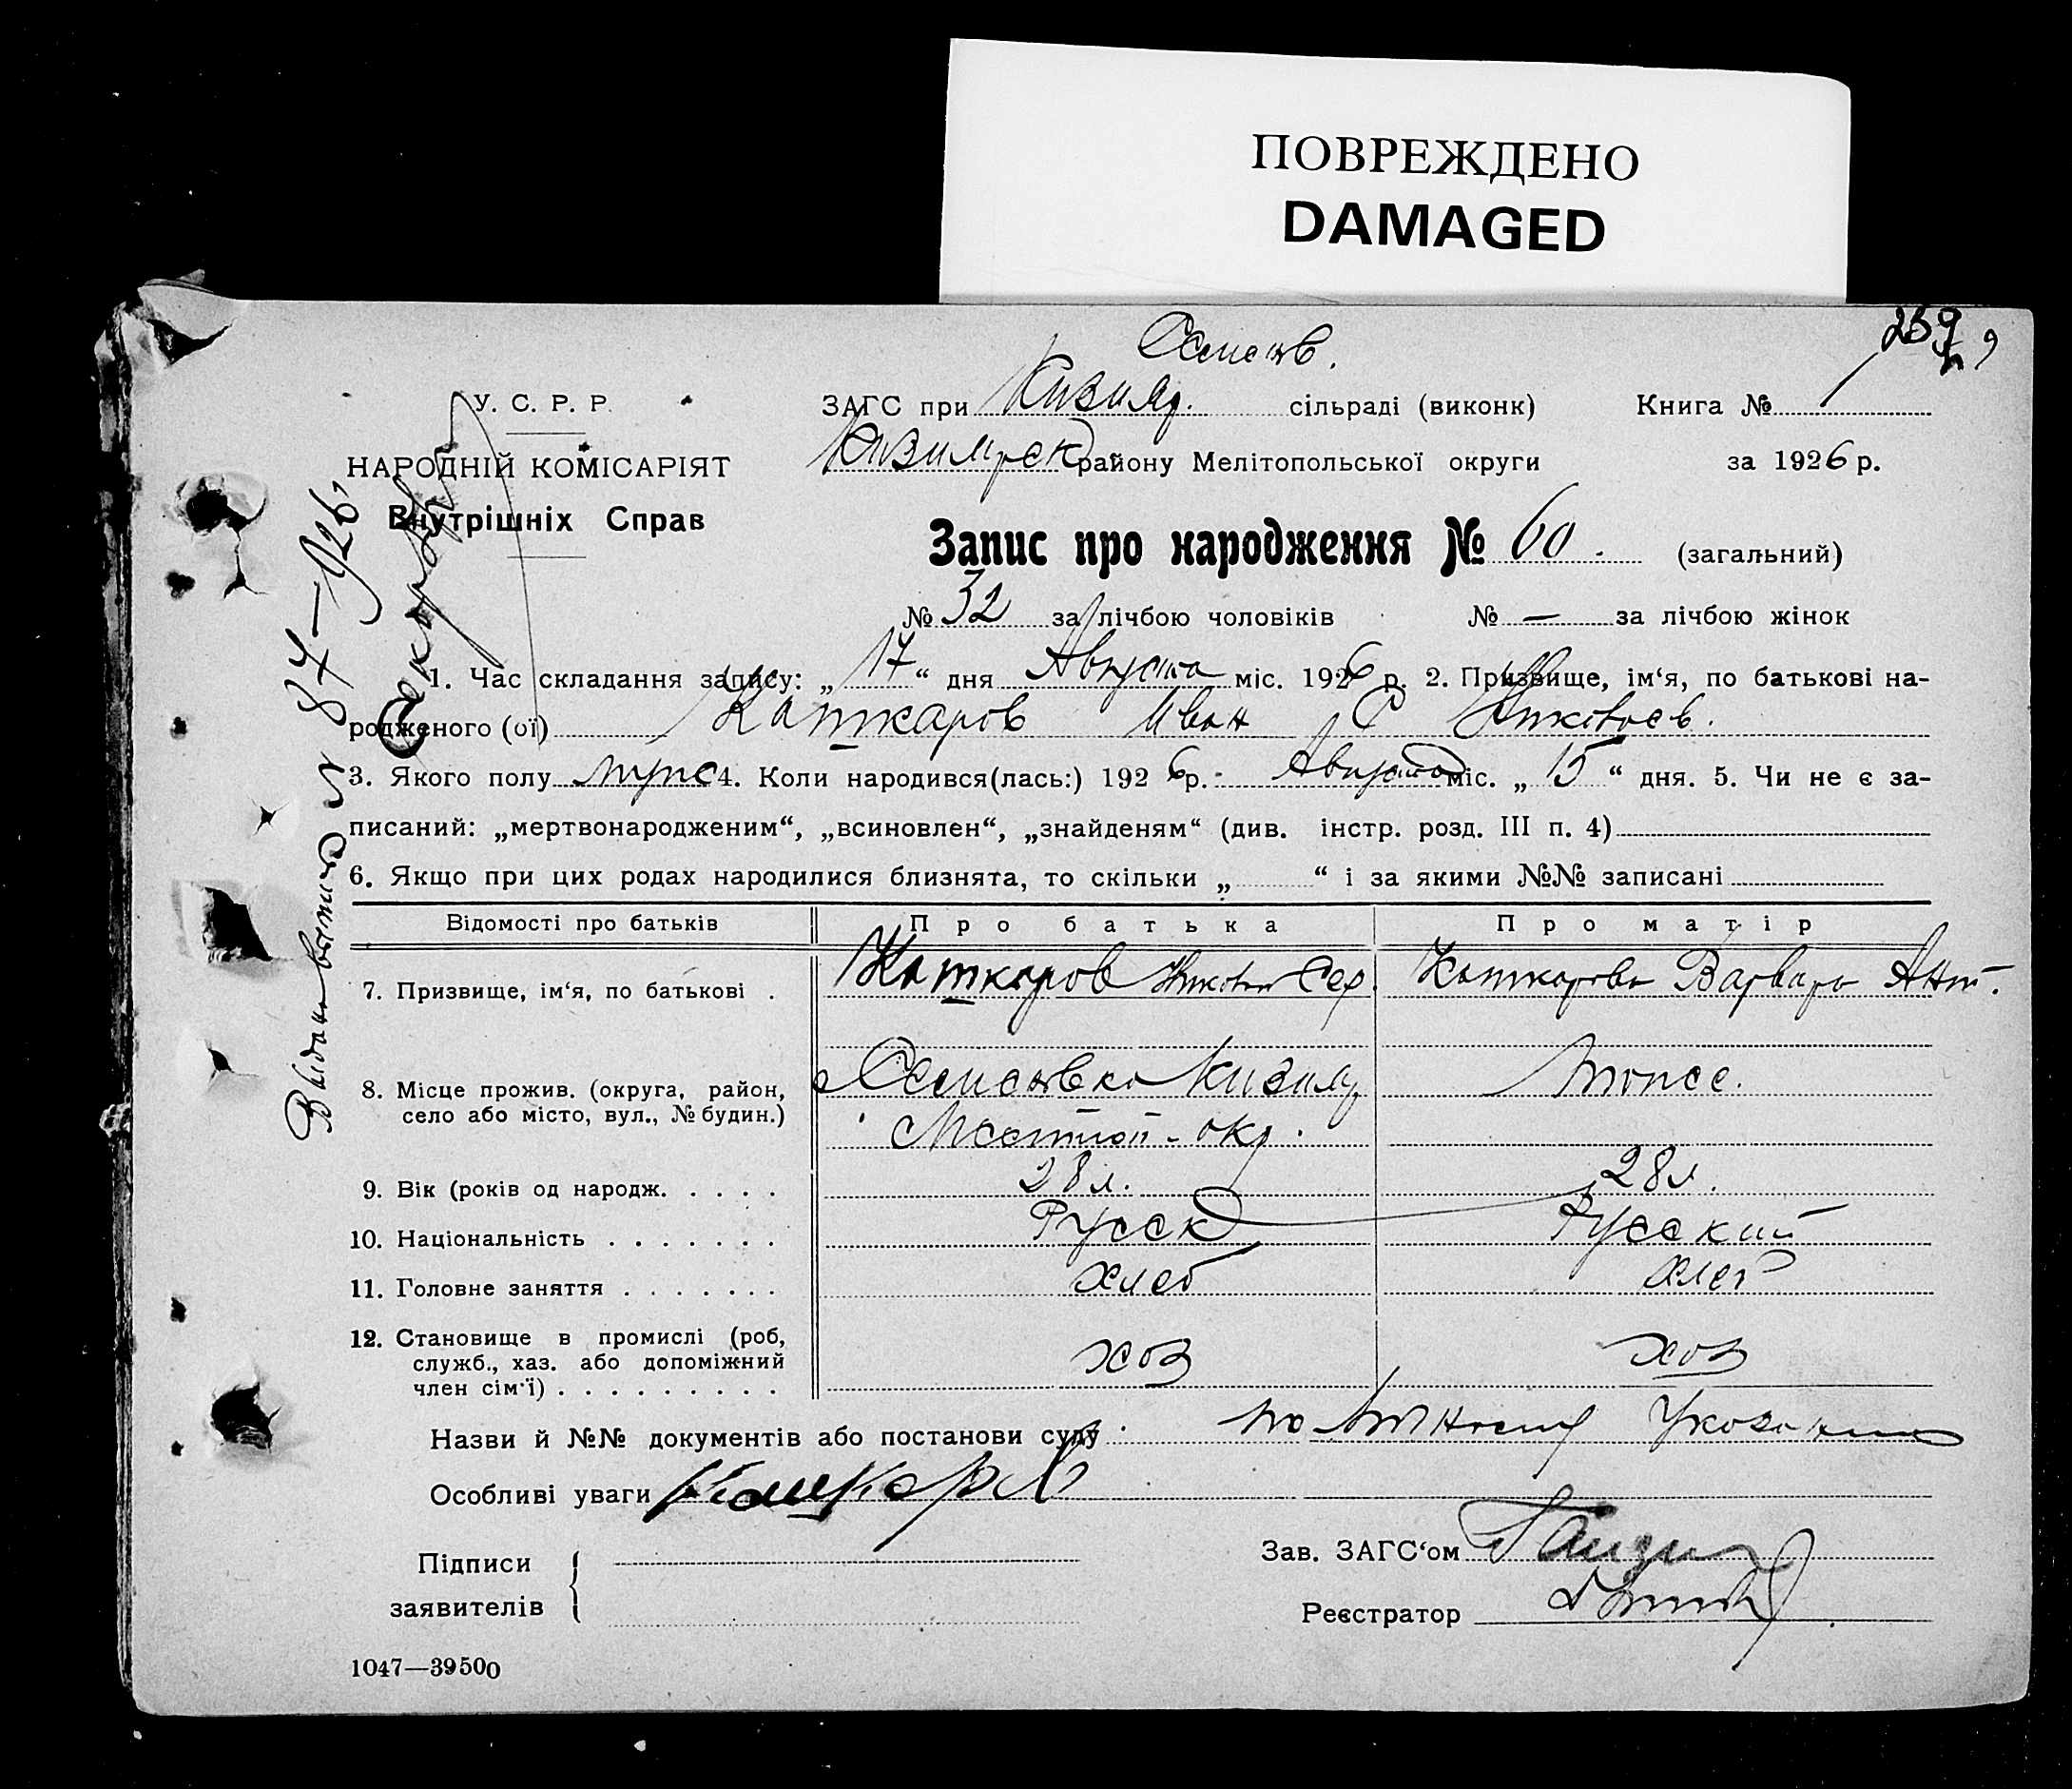 ПОВРЕЖДЕНО
DAMAGED
У. С. Р. Р.
НАРОДНІЙ КОМІСАРІЯТ
Внутрішніх Справ
ЗАГС при Кизияр. сільраді (виконк) Книга № 1
району Мелітопольської округи за 1926 р.
Запис про народження № 60. (загальний)
№ 32 за лічбою чоловіків № — за лічбою жінок
1. Час складання запису: „17“ дня Августа міс. 1926 р. 2. Призвище, ім‘я, по батькові на-
родженого (ої) Каткаров Иван
3. Якого полу 4. Коли народився(лась:) 1926 р. Августа міс. „15“ дня. 5. Чи не є за-
писаний: „мертвонародженим“, „всиновлен“, „знайденям“ (див. інстр. розд. III п. 4)
6. Якщо при цих родах народилися близнята, то скільки „ “ і за якими №№ записані
Відомості про батьків Про батька Про матір
7. Призвище, ім‘я, по батькові . Каткаров Сер. Каткарова Варвара Ант.
8. Місце прожив. (округа, район,
село або місто, вул., № будин.) Кизияр
окр.
9. Вік (років од народж. . . . . 28 л. 28 л.
10. Національність . . . . . . . Русск Русский
11. Головне заняття . . . . . . . хлеб хлеб
12. Становище в промислі (роб,
служб., хаз. або допоміжний
член сім‘ї) . . . . . . . . . хоз хоз
Назви й №№ документів або постанови суду по
Особливі уваги
Підписи
заявителів
Зав. ЗАГС‘ом
Реєстратор
1047—39500
№ 87—926